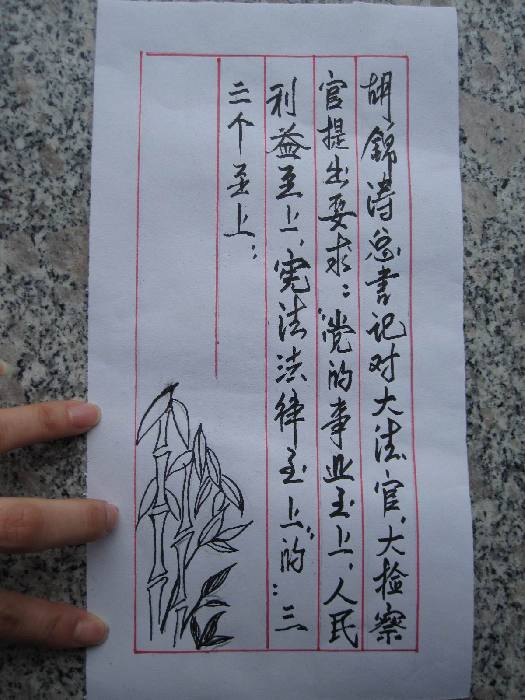 胡錦涛总書记对大法官、大检察
官提出要求：“党的事业至上、人民
利益至上、宪法法律至上”的：三
三个至上：